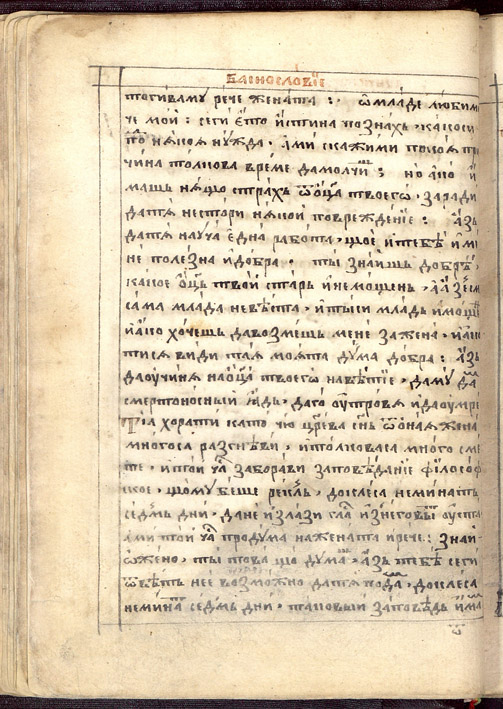 баⷭ҇нослⷪ҇вїе
тогива му рече жената : ѽ младе любим
че мой : сеги ето истина познахъ · какоси
то някоя нужда · ами скажими поⷦ҇оя при
чина толкова време да молчиⷲ : но ако и
машъ нящо страхъ ѿ оц҃а твоего · заради
да тя не стори някой повреждение : азъ
да тя науча една работа · щое и тебѣ и мї
не полезна и добра · ты знаишъ добрѣ ·
какое оц҃ъ твой старъ и немощенъ · а азъ есⷨ
сама млада невѣста · и ты си младъ и моще
и ако хочешъ да возмешъ мене за жена · и ако
тися види тая моята дума добра : азъ
да учиня на оц҃а твоего навѣтїе · да му даⷨ
смертоносный ядъ · да го ѹтровя и да ѹмре
Тїа хорати като чю цр҃ева сн҃ъ ѿ оная жена
многоса разгнѣви · и толковаса много сме
те · и той чаⷭ҇ заборави заповѣданїе філософ
ское · що му беше реклъ · доклеса неминатъ
седмь дни · да не излази глаⷭ҇ из неговы ѹста
ами той чаⷭ҇ продума на жената и рече : знай
ѽ жено · ты това що думаⷲ · азъ тебѣ сеги
ѿвѣтъ нее возможно да тя подаⷨ · доклеса
неминаⷮ седмь дни · таковый заповѣдь имаⷨ
ѿ